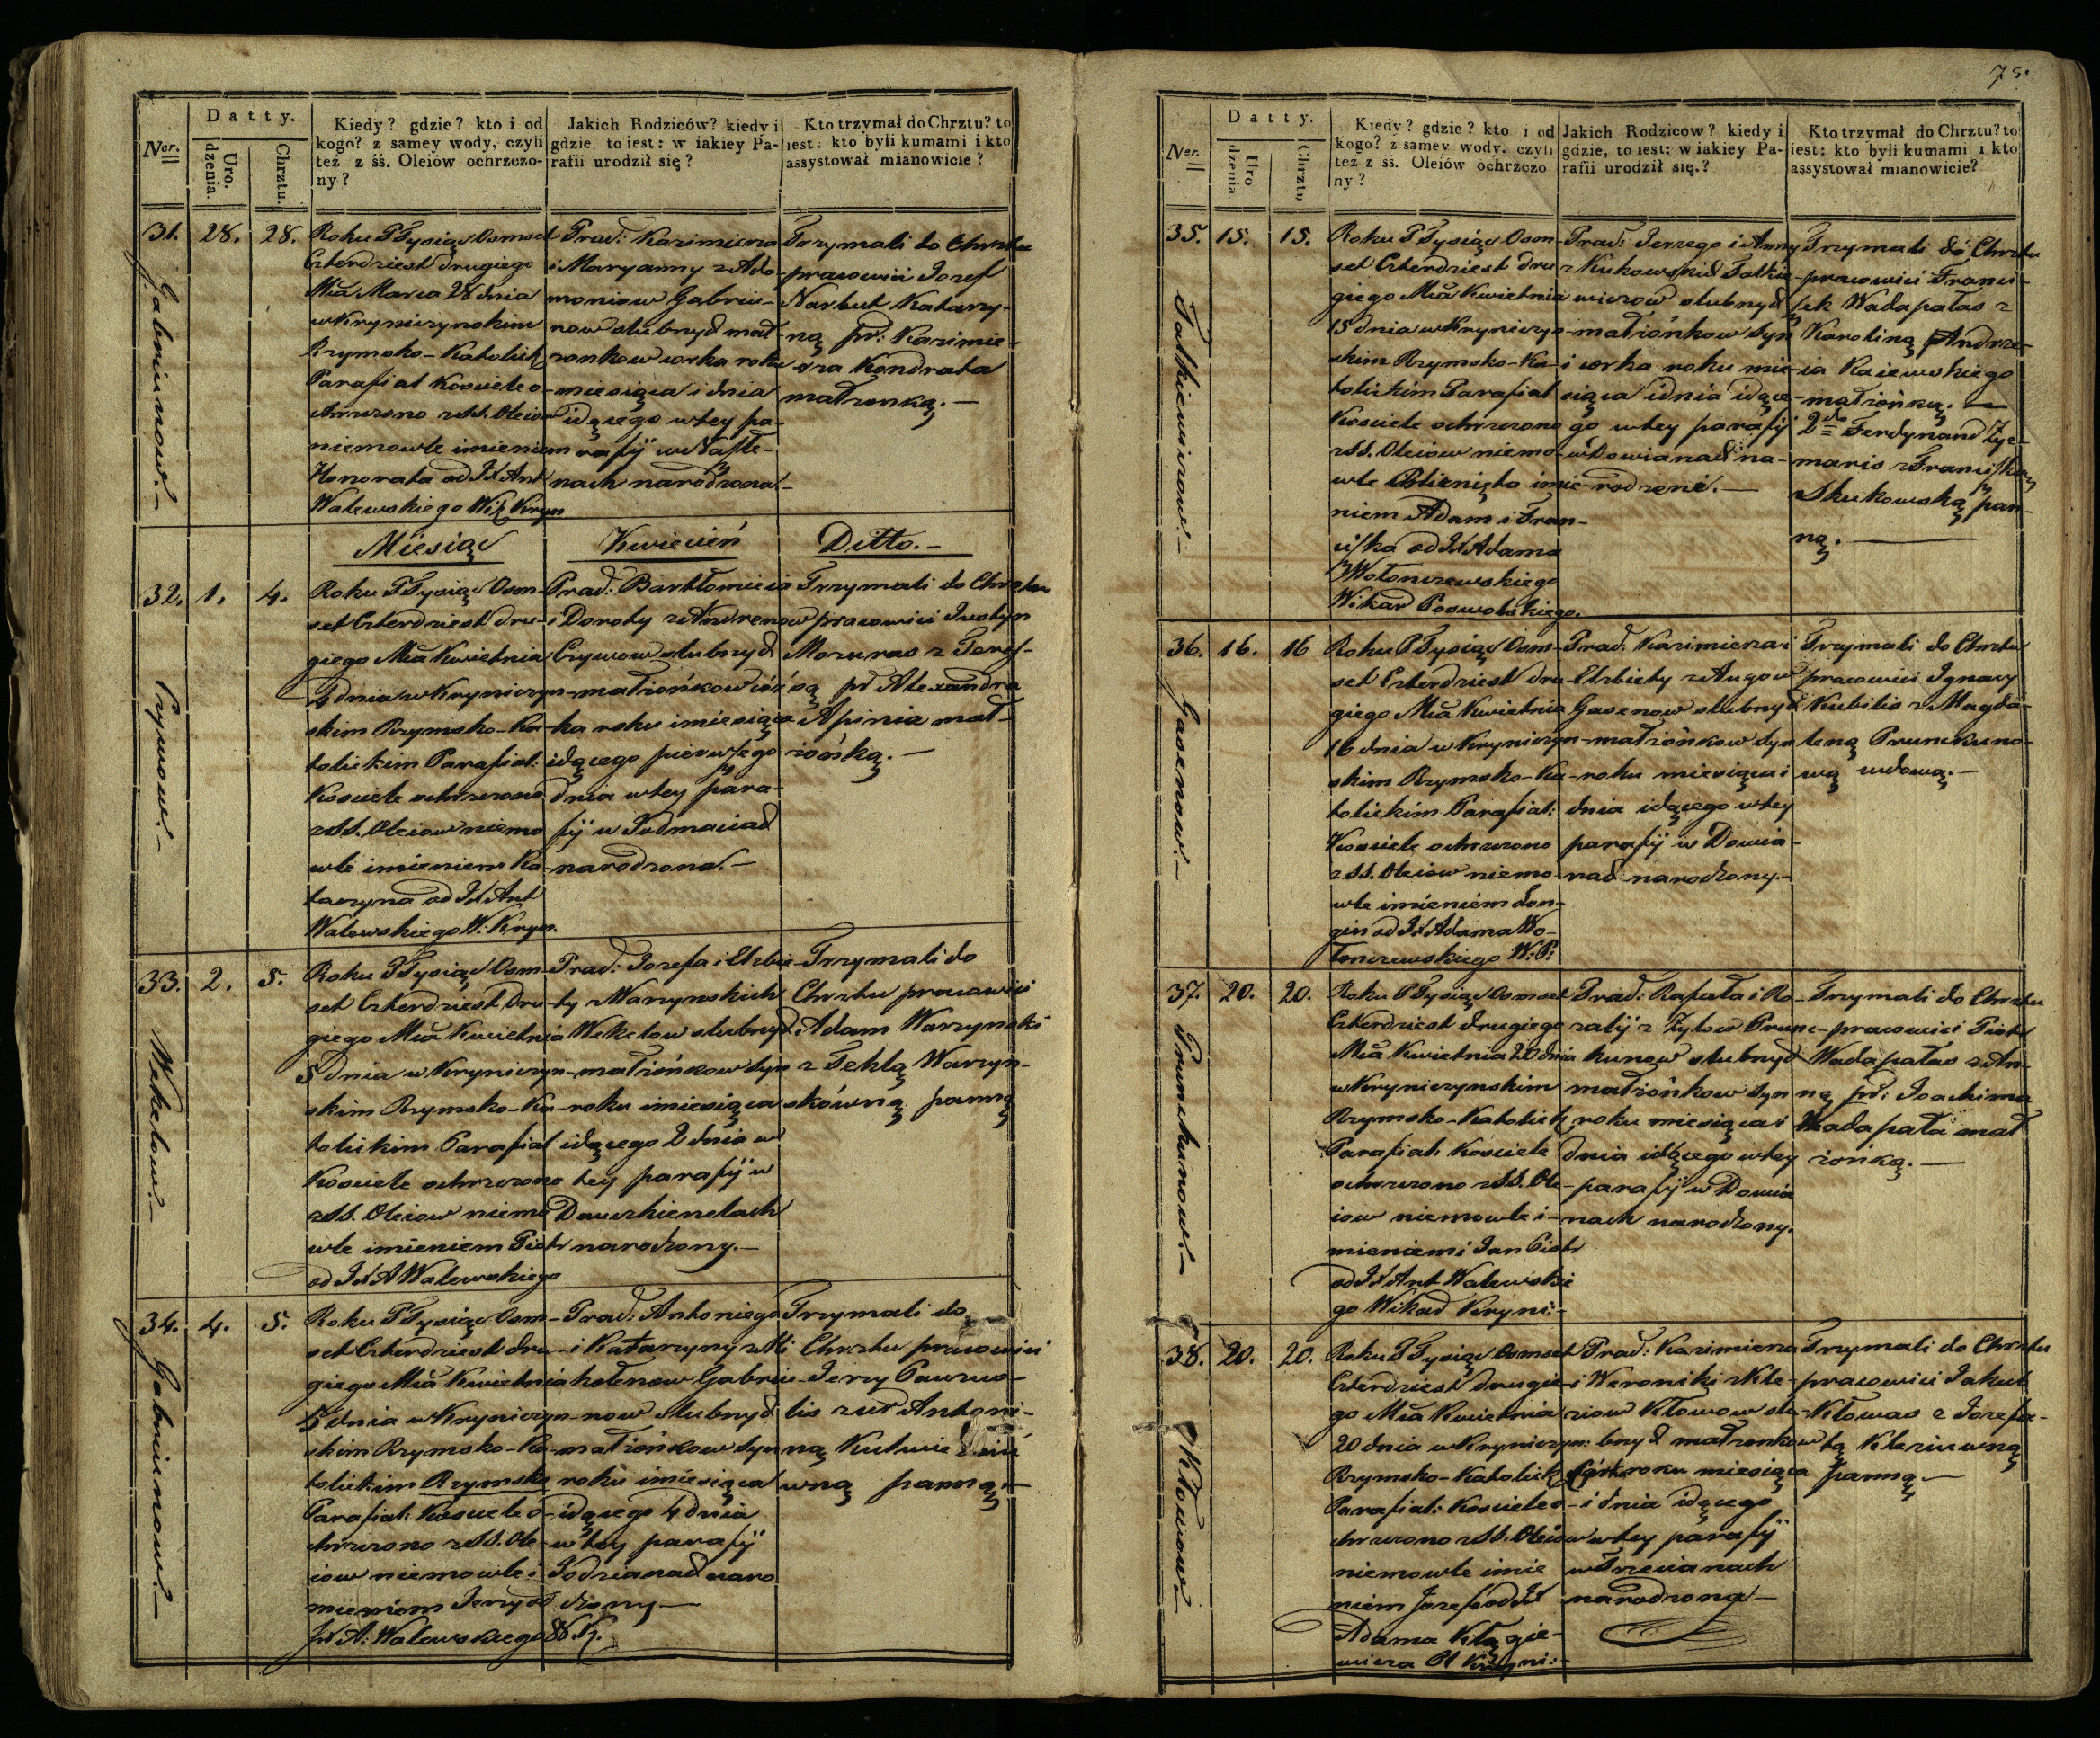 Datty.
Ner.
Uro.
dzenia.
Chrztu.
Kiedy? gdzie? kto i od
kogo? z samey wody, czyli
też z śś. Oleiów ochrzczo-
ny?
Jakich Rodziców? kiedy i
gdzie, to iest: w iakiey Pa-
rafii urodził się?
Kto trzymał do Chrztu? to
iest: kto byli kumami i kto
assystował mianowicie?
31.
28.
28.
Gabriunow.-
Roku P Tysiąc Osmset
Czterdziest drugiego
Mca Marca 28 dnia
w Kryniczynskim
Rzymsko-Katolick
Parafial Kosciele o-
chrzczono z SS. Oleiow
niemowle imieniem
Honorata od JX Ant
Walewskiego Wik Kryn
Prac: Kazimierza
i Maryanny z Ado-
moniow Gabriu-
now slubnych mał-
zonkow corka roku
miesiąca i dnia
idącego w tey pa-
rafij w
nach narodzona.-
Trzymali do Chrztu
pracowici Jozef
Narbut Katarzy-
ną pr: Kazimie-
rza Kondrata
małzonką.-
Miesiąc
Kwiecień
Ditto.-
32.
1.
4.
Roku P Tysiąc Osm-
set Czterdziest dru-
giego Mca Kwietnia
4 dnia w Krynczyn-
skim Rzymsko-Ka-
tolickim Parafial:
Kosciele ochrzczono
z SS. Oleiow niemo
wle imieniem Ka-
tarzyna od JX Ant
Walewskiego W: Kryn.
Prac: Bartłomieia
i Doroty z Andrenow
Crywow slubnych
małżońkow cór-
ka roku i miesiąca
idącego pierwszego
dnia w tey para-
fij w Podmaciach
narodzona.-
Trzymali do Chrztu
pracowici Justyn
Mozuras z Teres-
są pr Alexandra
Apinia mał-
żońką.-
33.
2.
5.
Wekelow.-
Roku P Tysiąc Osm-
set Czterdziest dru-
giego Mca Kwietnia
5 dnia w Kryniczyn-
skim Rzymsko-Ka-
tolickim Parafial
Kosciele ochrzczono
z SS. Oleiow niemo
wle imieniem Piotr
od JX A Walewskiego
Prac: Jozefa i Elzbie-
ty z Warzynskich
Wekelow slubnych
małżońkow syn
roku i miesiąca
idącego 2 dnia w
tey parafij w
Dauczkienelach
narodzony.-
Trzymali do
Chrztu pracowici
Adam Warzynski
z Teklą Warzyn-
skówną panną
34.
4.
5.
Gabriunow.-
Roku P Tysiąc Osm-
set Czterdziest dru-
giego Mca Kwietnia
5 dnia w Kryniczyn-
skim Rzymsko-Ka-
tolickim Rzymsko
Parafial: Kosciele o-
chrzczono z SS. Ole-
iow niemowle i-
mieniem Jerzy od
JX A: Walewskiego W. K.
Prac: Antoniego
i Katarzyny z Mi
kolenow Gabriu-
now slubnych
małżońkow syn
roku i miesiąca
idącego 4 dnia
w tey parafij
Jodzianach naro
dzony-
Trzymali do
Chrztu pracowici
Jerzy
lis z Antoni-
ną
wną panną.-
Datty.
Ner.
Uro
dzenia.
Chrztu
Kiedy? gdzie? kto i od
kogo? z samey wody, czyli
też z śś. Oleiów ochrzczo
ny?
Jakich Rodzicow? kiedy i
gdzie, to iest: w iakiey Pa-
rafii urodził się?
Kto trzymał do Chrztu? to
iest: kto byli kumami i kto
assystował mianowicie?
35.
15.
15.
Falkiewiczow.-
Roku P Tysiąc Osm-
set Czterdziest dru
giego Mca Kwietnia
15 dnia w Kryniczyn-
skim Rzymsko-Ka-
tolickim Parafial
Kosciele ochrzczono
z SS. Oleiow niemo-
wle Bliznięta imie-
niem Adam i Fran-
ciszka od JX Adama
Wołonczewskiego
Wikar Poswolskiego.
Prac: Jerzego i Anny
z Kukowskich Falkie-
wiczow slubnych
małżońkow syn
i corka roku mie-
siąca i dnia idące-
go w tey parafij
w Dowianach na-
rodzone.-
Trzymali do Chrztu
pracowici Franci-
szek Wadapałas z
Karoliną Andrze-
ia Raiewskiego
małżońką.-
2do Ferdynand Zyz-
maris z Franciszką
Skukowską pan-
ną.
36.
16.
16
Gasenow.-
Roku P Tysiąc Osm-
set Czterdziest dru
giego Mca Kwietnia
16 dnia w Kryniczyn-
skim Rzymsko-Ka-
tolickim Parafial:
Kosciele ochrzczono
z SS. Oleiow niemo
wle imieniem Lon-
gin od JX Adama Wo-
łonczewskiego W: P:
Prac: Kazimierza i
Elzbiety z Augow
Gasenow slubnych
małżońkow syn
roku miesiąca i
dnia idącego w tey
parafij w Dowia-
nach narodzony.-
Trzymali do Chrztu
pracowici Ignacy
Kubilis z Magda-
leną Prunckuno-
wą wdową.-
37.
20.
20.
Prunckunow.-
Roku P Tysiąc Osmset
Czterdziest drugiego
Mca Kwietnia 20 dnia
w Kryniczynskim
Rzymsko-Katolick
Parafial: Kosciele
ochrzczono z SS. Ole-
iow niemowle i-
mieniem i Jan Piotr
od JX Ant Walewskie
go Wikar Kryni:-
Prac: Rafała i Ro-
zalij z Zylow Prunc-
kunow slubnych
małżońkow syn
roku miesiąca i
dnia idącego w tey
parafij w Dowia
nach narodzony.
Trzymali do Chrztu
pracowici Piotr
Wadapałas z An-
ną pr: Joachima
Wadapała mał
żonką.-
38.
20.
20.
Kłowow.-
Roku P Tysiąc Osmset
Czterdziest drugie-
go Mca Kwietnia
20 dnia w Kryniczyn:
Rzymsko-Katolick
Parafial: Kosciele o-
chrzczono z SS. Oleiow
niemowle imie
niem Jozefa od JX
Adama
wicza Kryni:-
Prac: Kazimierza
i Weroniki z Kle-
ziow Kłowow slu-
bnych małżonkow
córk roku miesiąca
i dnia idącego
w tey parafij
w Trzecianach
narodzona-
Trzymali do Chrztu
pracowici Jakub
Kłowas z Jozefa-
tą Kleziuwną
panną.-